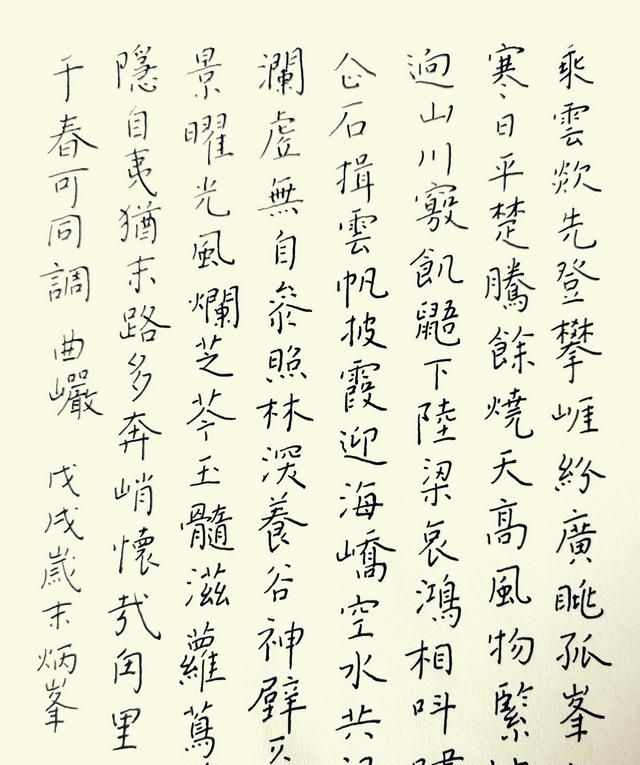 乘雲欻先登攀崕紛廣眺孤峯
寒日平楚騰餘燒天高風物緊
逈山川竅飢鼯下陸梁哀鴻相叫
石揖雲帆披霞迎海嶠空水共
瀾虛無自叅照林深養谷神
景曜光風爛芝苓玉髓滋蘿蔦
隱自夷猶末路多奔峭懷哉向里
千春可同調 曲巖 戊戌歲末炳峯